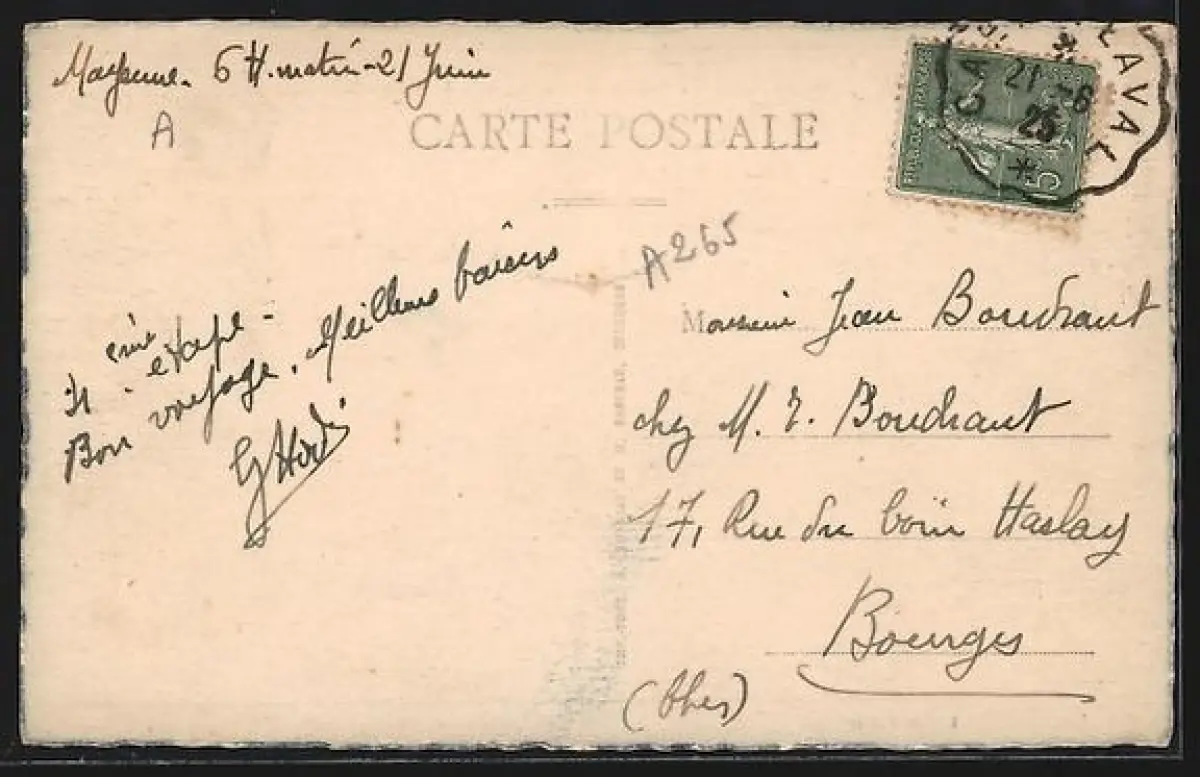 Mayenne. 6 H. matin - 21 Juin
A
CARTE POSTALE
LAVAL
21 -6
25
15
A265
4 ème étape -
Bon voyage. Meilleurs baisers
Monsieur Jean Boudraut
chez M. E. Boudraut
17, Rue du
Bourges
(Cher)